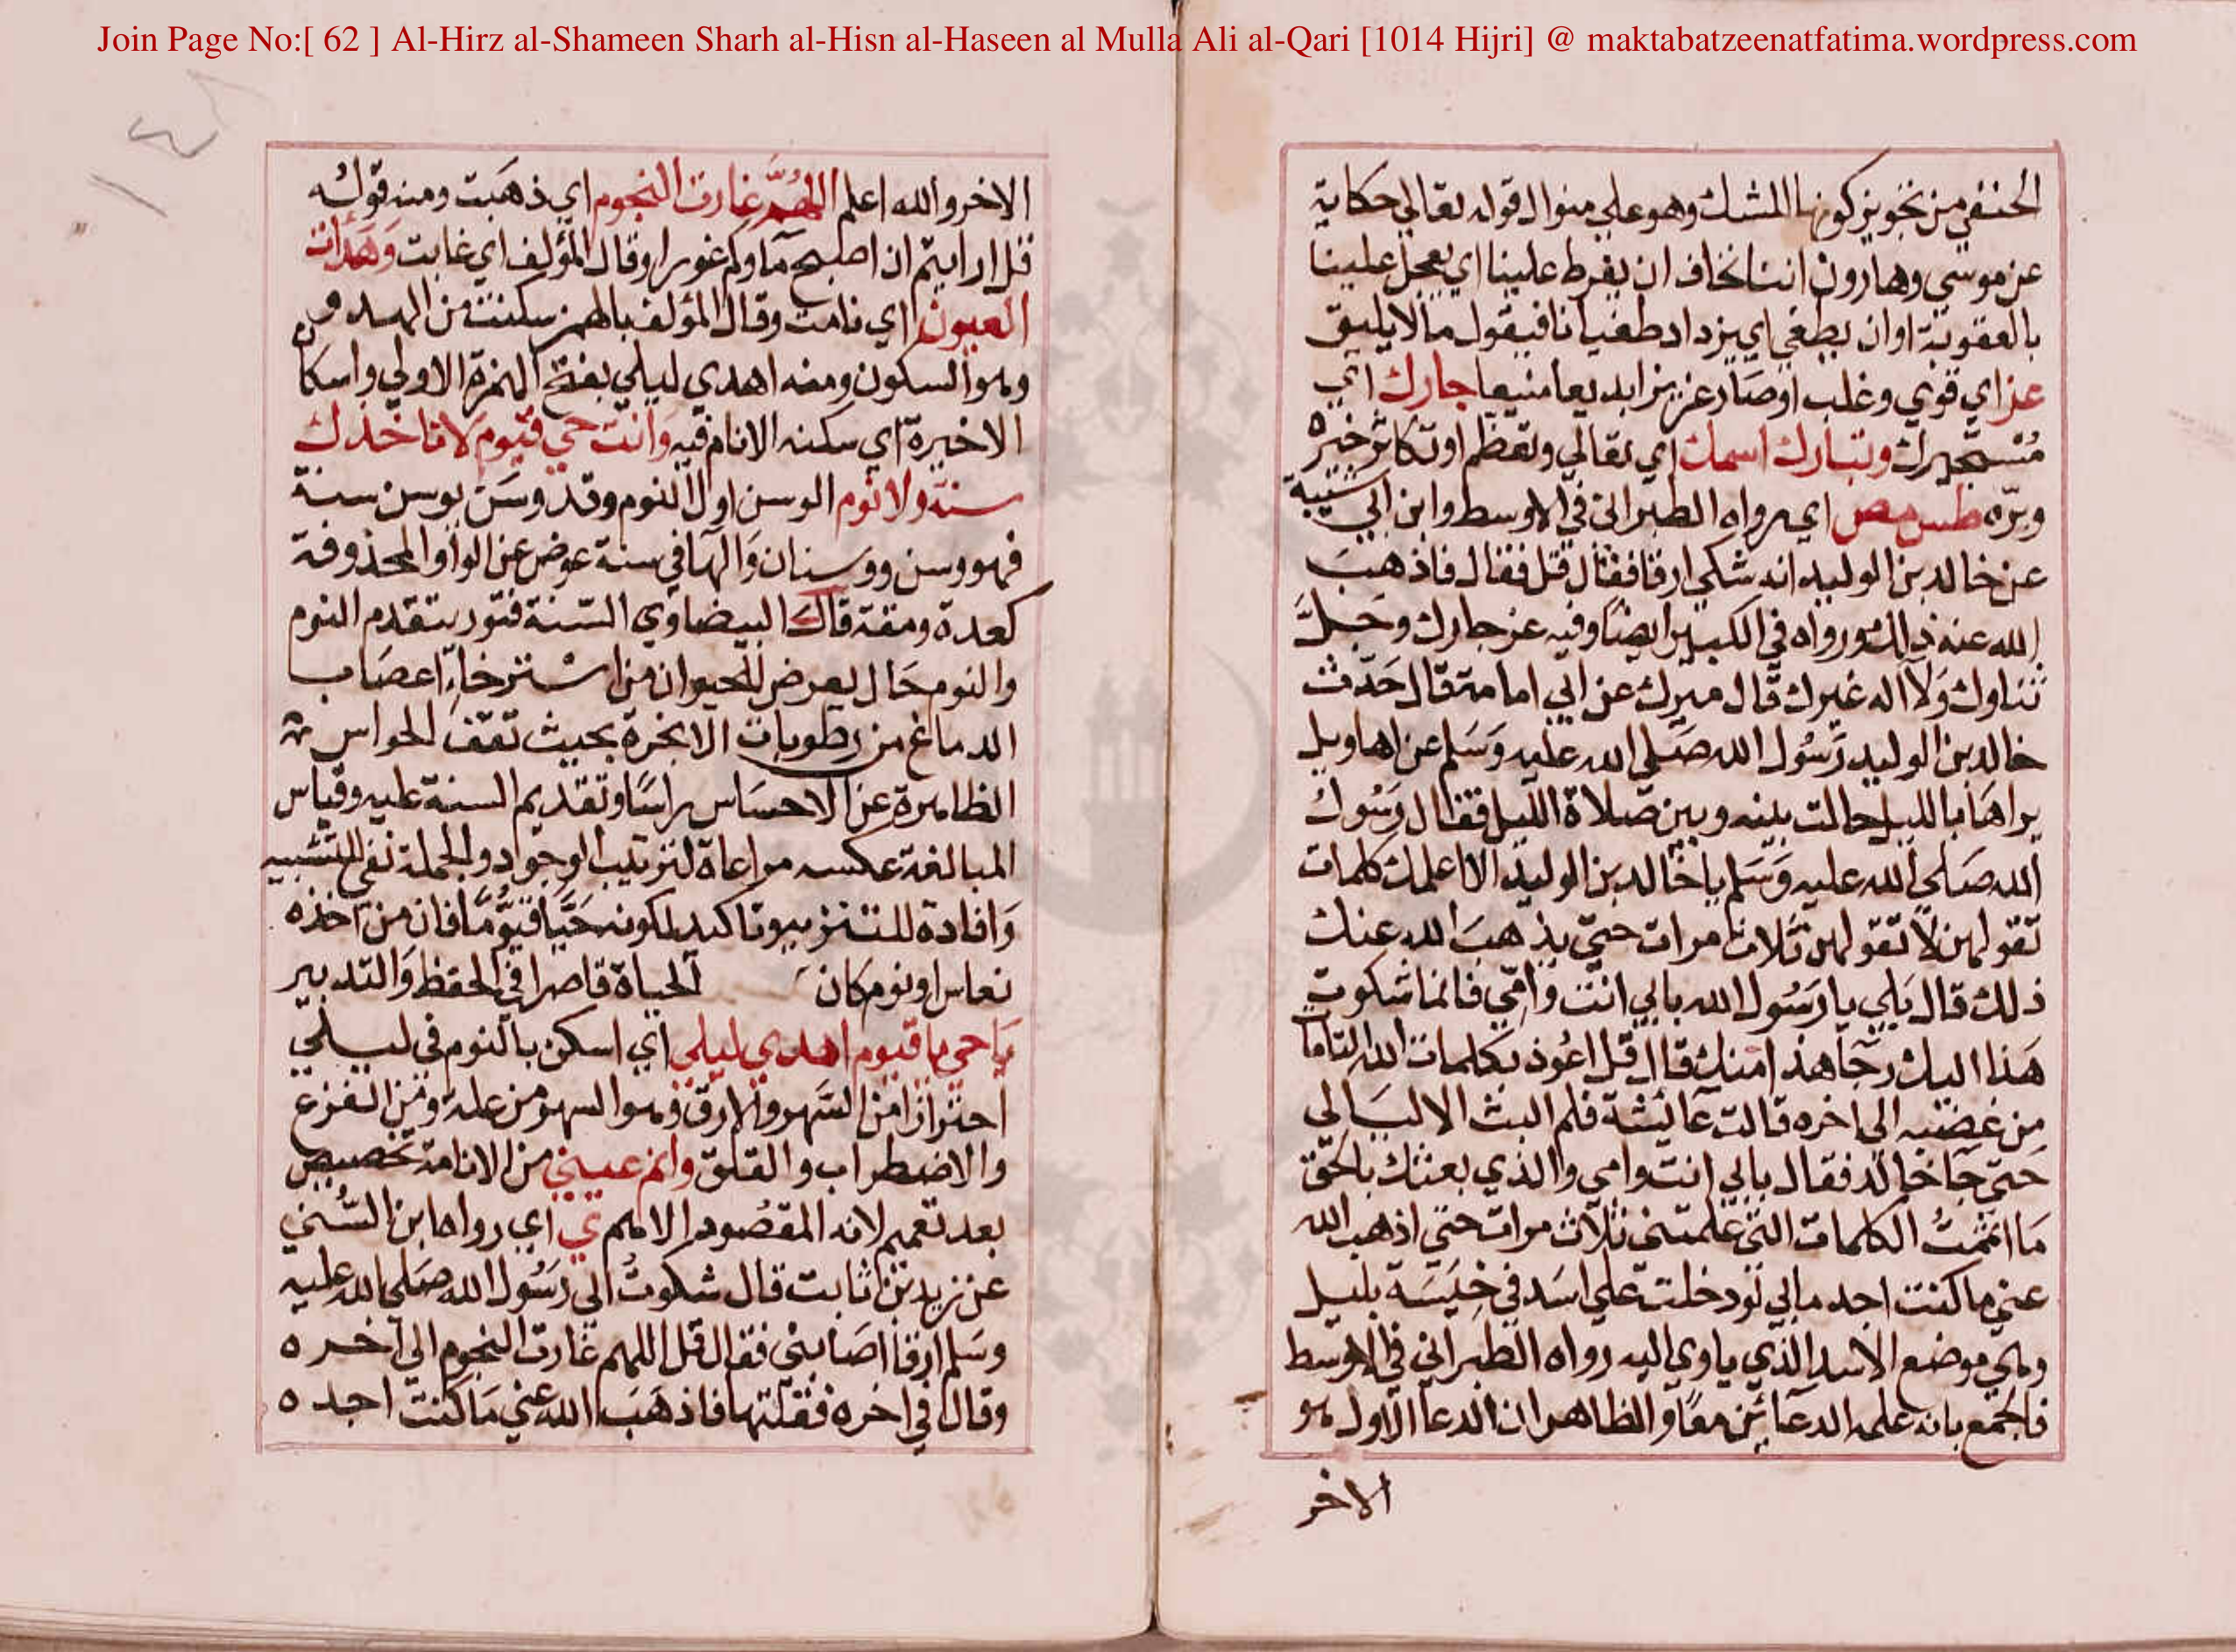 Join Page No:[ 62 ] Al-Hirz al-Shameen Sharh al-Hisn al-Haseen al Mulla Ali al-Qari [1014 Hijri] @ maktabatzeenatfatima.wordpress.com
الحنفي من تجويز كونها للشك وهو علي منوال قوله تعالي حكاية
عن موسي وهارون اننا نخاف ان يفرط علينا اي يعجل علينا
بالعقوبة او ان يطغي اي يزداد طغيانا فيقول ما لا يليق
عز اي قوي وغلب او صار عزيزا بديعا منيعا جارك اي
مستجيرك وتبارك اسمك اي تعالي وتعظم او تكاثر خيره
وبره طس مص اي رواه الطبراني في الاوسط وابن ابي شيبة
عن خالد بن الوليد انه شكي ارقا فقال قل فقال فاذهب
الله عنه ذلك ورواه في الكبير ايضا وفيه عز جارك وجل
ثناوك ولا اله غيرك قال ميرك عن ابي امامة قال حدث
خالد بن الوليد رسول الله صلي الله عليه وسلم عن اهاويل
يراها بالليل حالت بينه وبين صلاة الليل فقال رسول
الله صلي الله عليه وسلم يا خالد بن الوليد الا اعلمك كلمات
تقولهن لا تقولهن ثلاث مرات حتي يذهب الله عنك
ذلك قال بلي يا رسول الله بابي انت وامي فانما شكوت
هذا اليك رجا هذا منك قال قل اعوذ بكلمات الله التاما
من غضبه الي اخره قالت عائشة فلم البث الا ليالي
حتي جا خالد فقال بابي انت وامي والذي بعثك بالحق
ما اتممت الكلمات التي علمتني ثلاث مرات حتي اذهب الله
عني ما كنت اجد ما بي لو دخلت علي اسد في خيسة بليل
وهي موضع الاسد الذي ياوي اليه رواه الطبراني في الاوسط
فالجمع بانه علمه الدعائين معا والظاهر ان الدعا الاول هو
الاخر
الاخر والله اعلم اللهم غارت النجوم اي ذهبت ومنه قوله
قل ارايتم ان اصبح ماوكم غورا وقال المؤلف اي غابت وهدات
العيون اي نامت وقال المؤلف بالهمز سكنت من الهدو
وهو السكون ومنه اهدي ليلي بفتح الهمزة الاولي واسكان
الاخيرة اي سكنه الانام فيه وانت حي قيوم لا تاخذك
سنة ولا نوم الوسن اول النوم وقد وسن يوسن سنة
فهو وسن ووسنان والها في سنة عوض عن الواو المحذوفة
كعدة ومقة قال البيضاوي السنة فتور يتقدم النوم
والنوم حال يعرض للحيوان من استرخاء اعصاب
الدماغ من رطوبات الابخرة بحيث تقف الحواس
الظاهرة عن الاحساس راسا وتقديم السنة عليه وقياس
المبالغة عكسه مراعاة لترتيب الوجود والجملة نفي للتشبيه
وافادة للتنزيه وتاكيد لكونه حيا قيوما فان من اخذه
نعاس او نوم كان الحياة قاصرا في الحفظ والتدبير
يا حي يا قيوم اهدي ليلي اي اسكن بالنوم في ليلي
احترازا من السهر والارق وهو السهر من علة ومن الفزع
والاضطراب والقلق وانم عيني من الانامة تخصيص
بعد تعميم لانه المقصود الاهم ي اي رواه ابن السني
عن زيد بن ثابت قال شكوت الي رسول الله صلي الله عليه
وسلم ارقا اصابني فقال قل اللهم غارت النجوم الي اخره
وقال في اخره فقلتها فاذهب الله عني ما كنت اجد